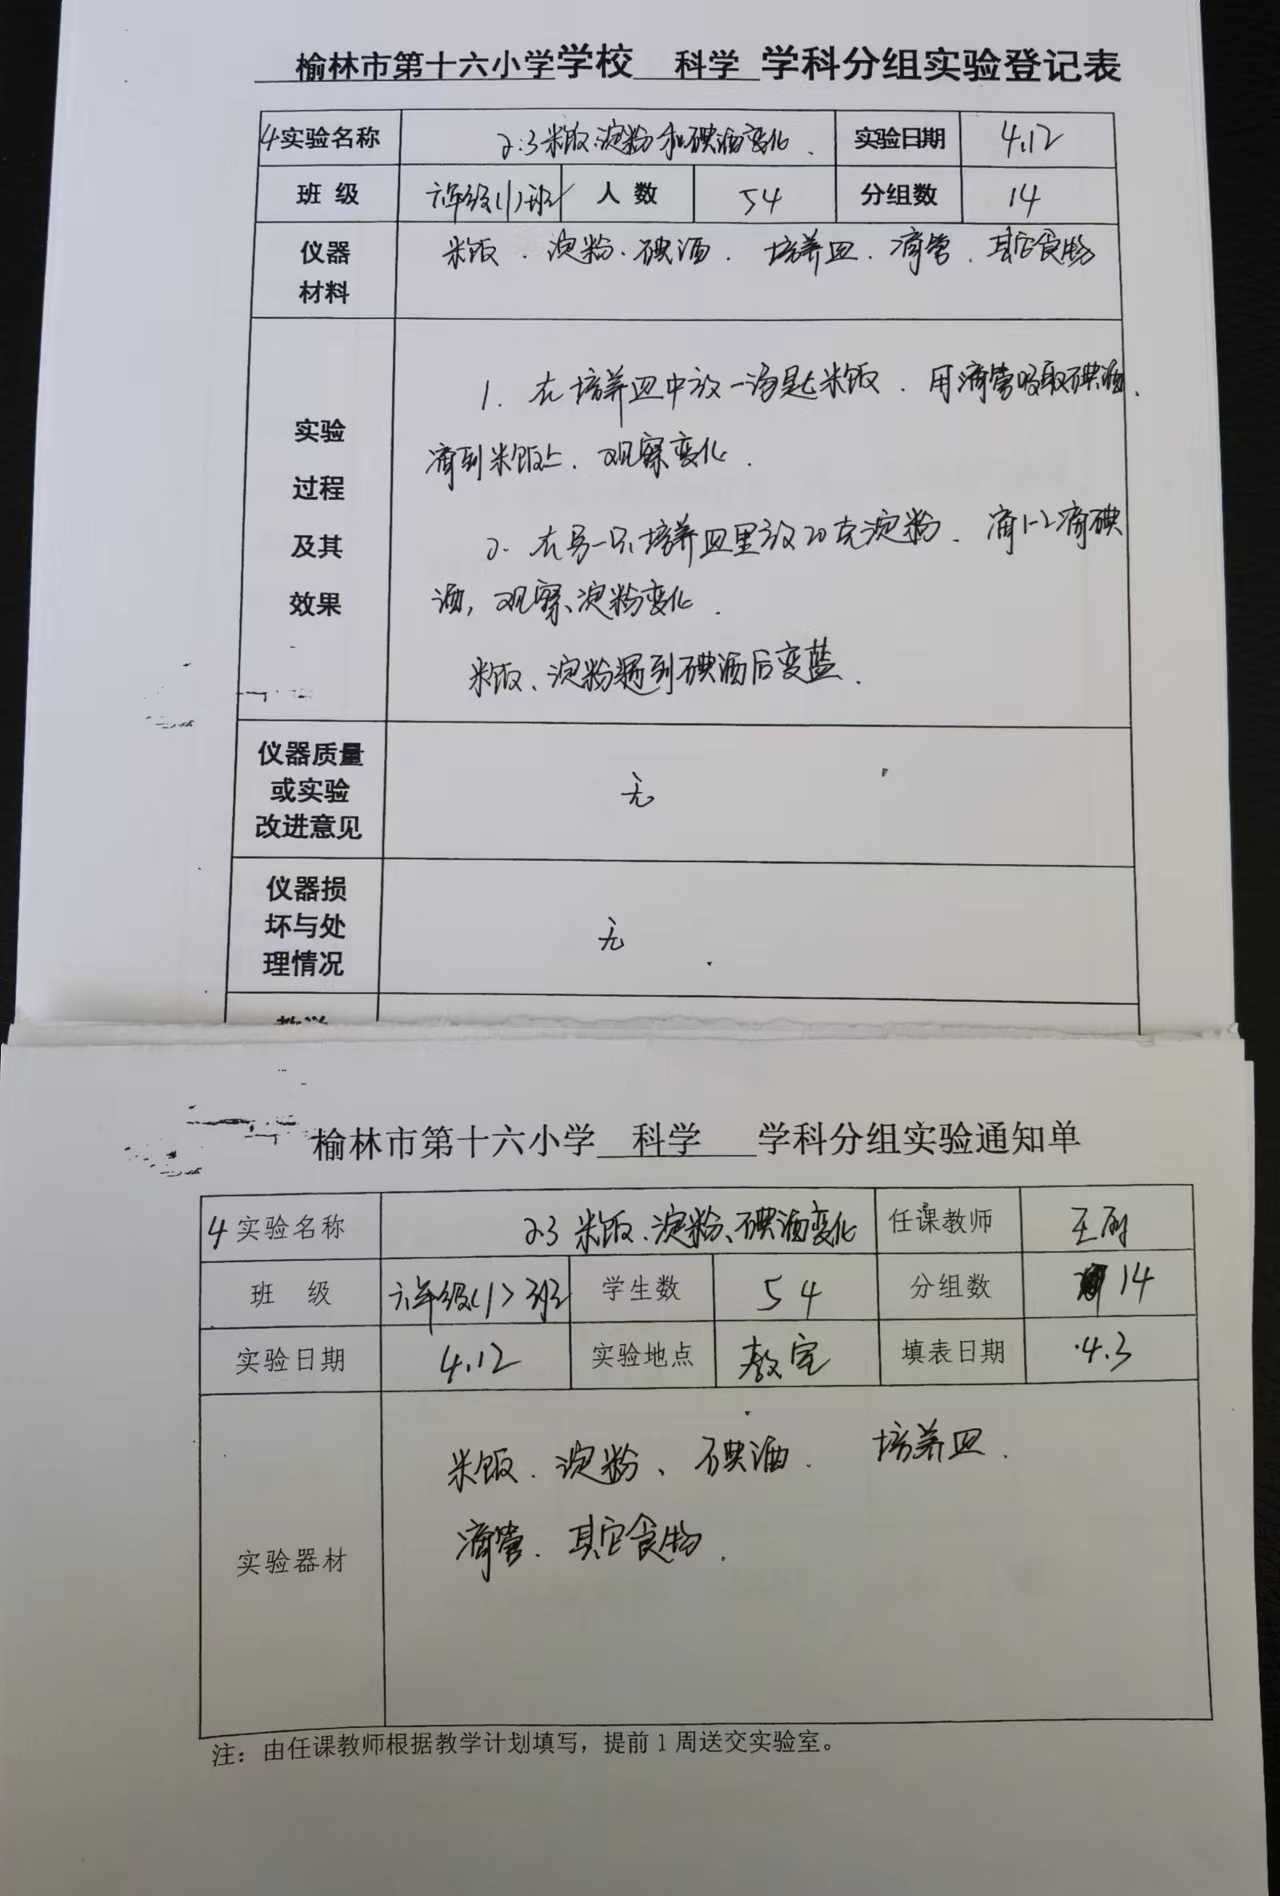 榆林市第十六小学学校 科学 学科分组实验登记表
4 实验名称 2.3米饭、淀粉和碘酒变化. 实验日期 4.12
班 级 六年级(1)班 人 数 54 分组数 14
仪器 米饭、淀粉、碘酒、培养皿、滴管、其它食物
材料
1. 在培养皿中放一汤匙米饭、用滴管吸取碘酒、
实验 滴到米饭上、观察变化.
过程
及其 2. 在另一只培养皿里放20克淀粉、滴1-2滴碘
效果 酒, 观察淀粉变化.
米饭、淀粉遇到碘酒后变蓝.
仪器质量
或实验 无
改进意见
仪器损
坏与处 无
理情况
榆林市第十六小学 科学 学科分组实验通知单
4 实验名称 2.3 米饭、淀粉、碘酒变化 任课教师 王
班 级 六年级(1)班 学生数 54 分组数 14
实验日期 4.12 实验地点 教室 填表日期 4.3
米饭、淀粉、碘酒. 培养皿.
实验器材 滴管、其它食物.
注：由任课教师根据教学计划填写，提前1周送交实验室。